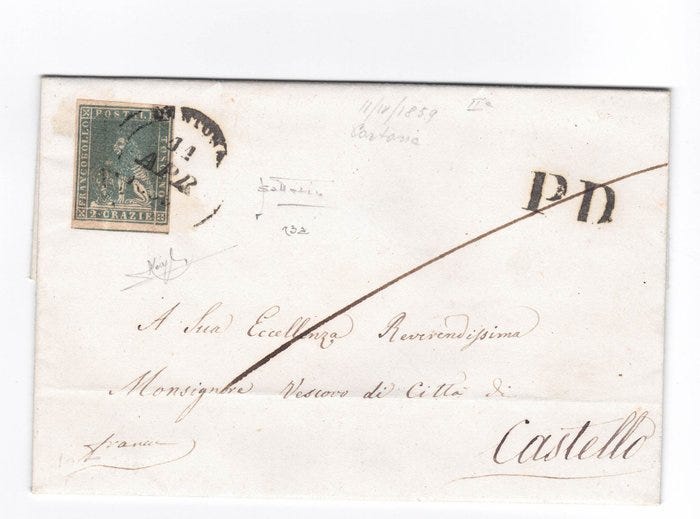 FRANCOBOLLO POSTALE TOSCANO
2 CRAZIE
CORTONA
11
APR
11/IV/1859 IIa
Cortona
23a
PD
A Sua Eccellenza Reverendissima
Monsignore Vescovo di Città di
Castello
franca